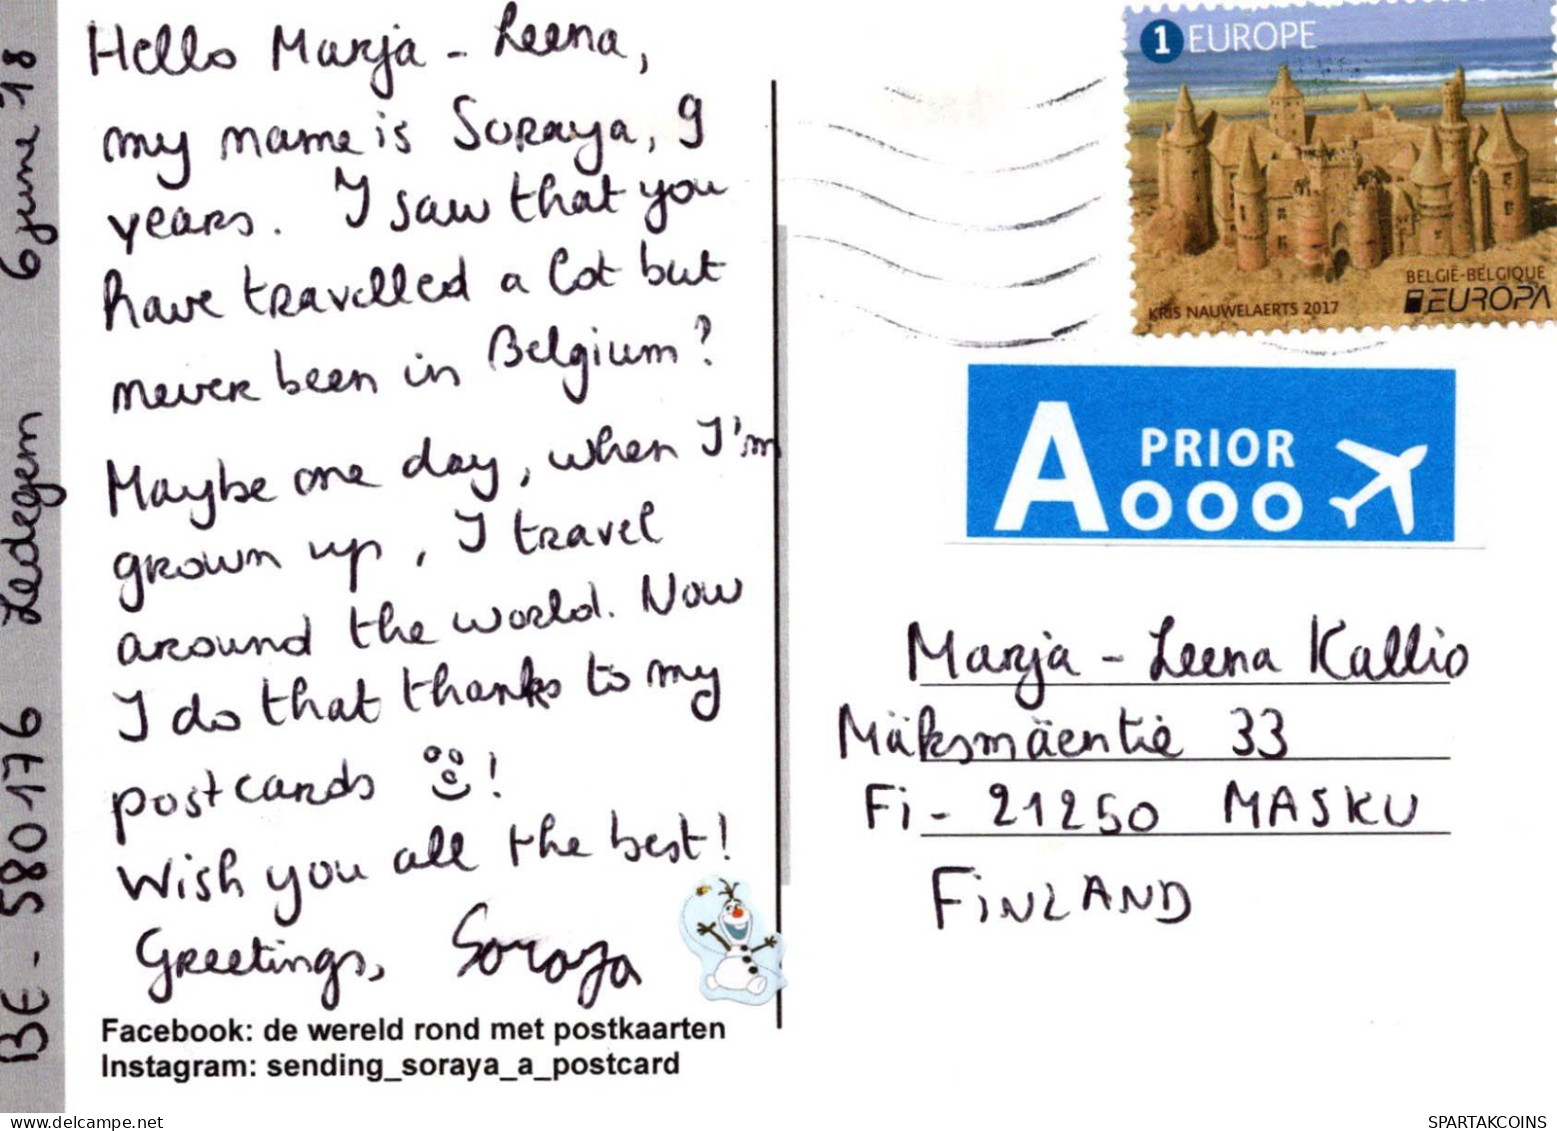 Hello Marja - Leena,
my name is Soraya, 9
years. I saw that you
have travelled a lot but
never been in Belgium?
Maybe one day, when I'm
grown up, I travel
around the world. Now
I do that thanks to my
postcards !
Wish you all the best!
Greetings, Soraya
Facebook: de wereld rond met postkaarten
Instagram: sending_soraya_a_postcard
BE - 580176 Ledegem 6 june '18
1 EUROPE
BELGIË-BELGIQUE
KRIS NAUWELAERTS 2017
EUROPA
A PRIOR
Marja - Leena Kallio
Mäksmäentie 33
Fi - 21250 MASKU
FiNLAND
SPARTAKCOINS